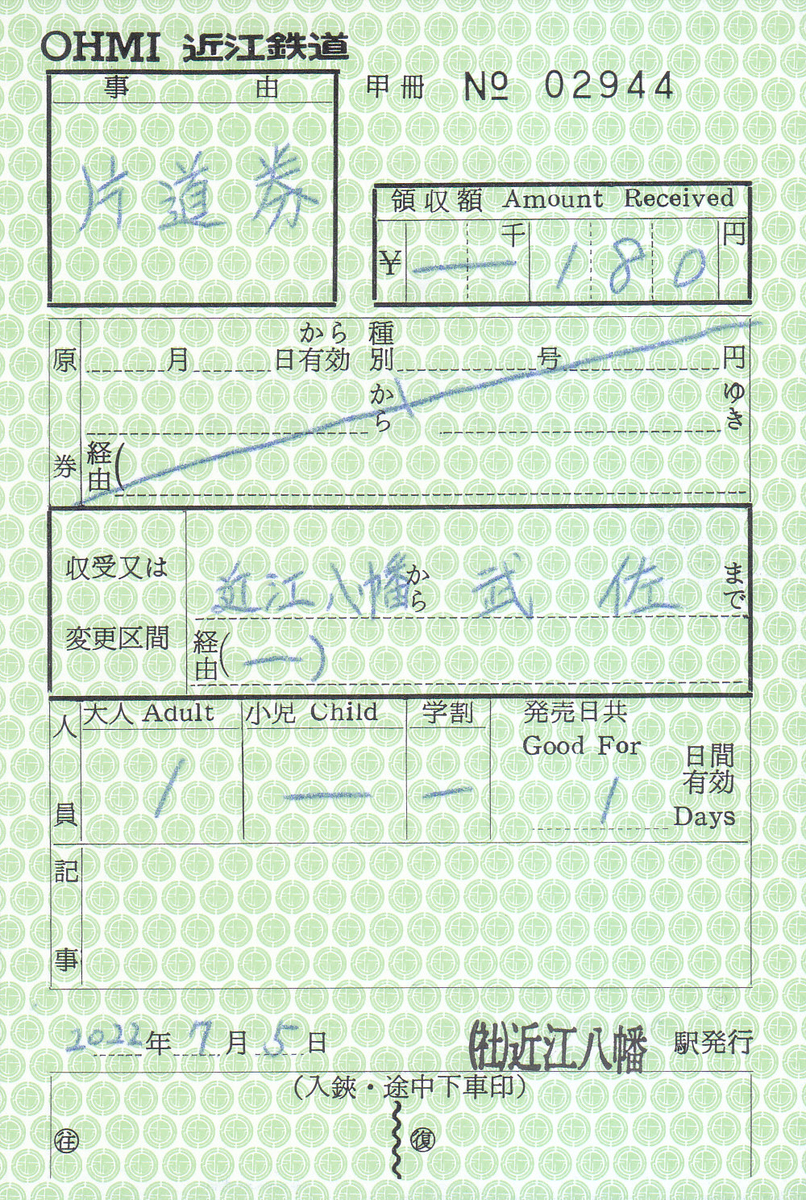 OHMI 近江鉄道
事 由 甲冊 № 02944
片道券
領収額 Amount Received
¥ ― 千 1 8 0 円
原券
月 日 から有効 種別 号 円
から ゆき
経由(
収受又は変更区間
近江八幡から 武佐 まで
経由(―)
人員
大人 Adult 小児 Child 学割 発売日共
Good For
1 ― ― 1 日間有効
Days
記事
2022年7月5日 (社)近江八幡 駅発行
(入鋏・途中下車印)
往 復